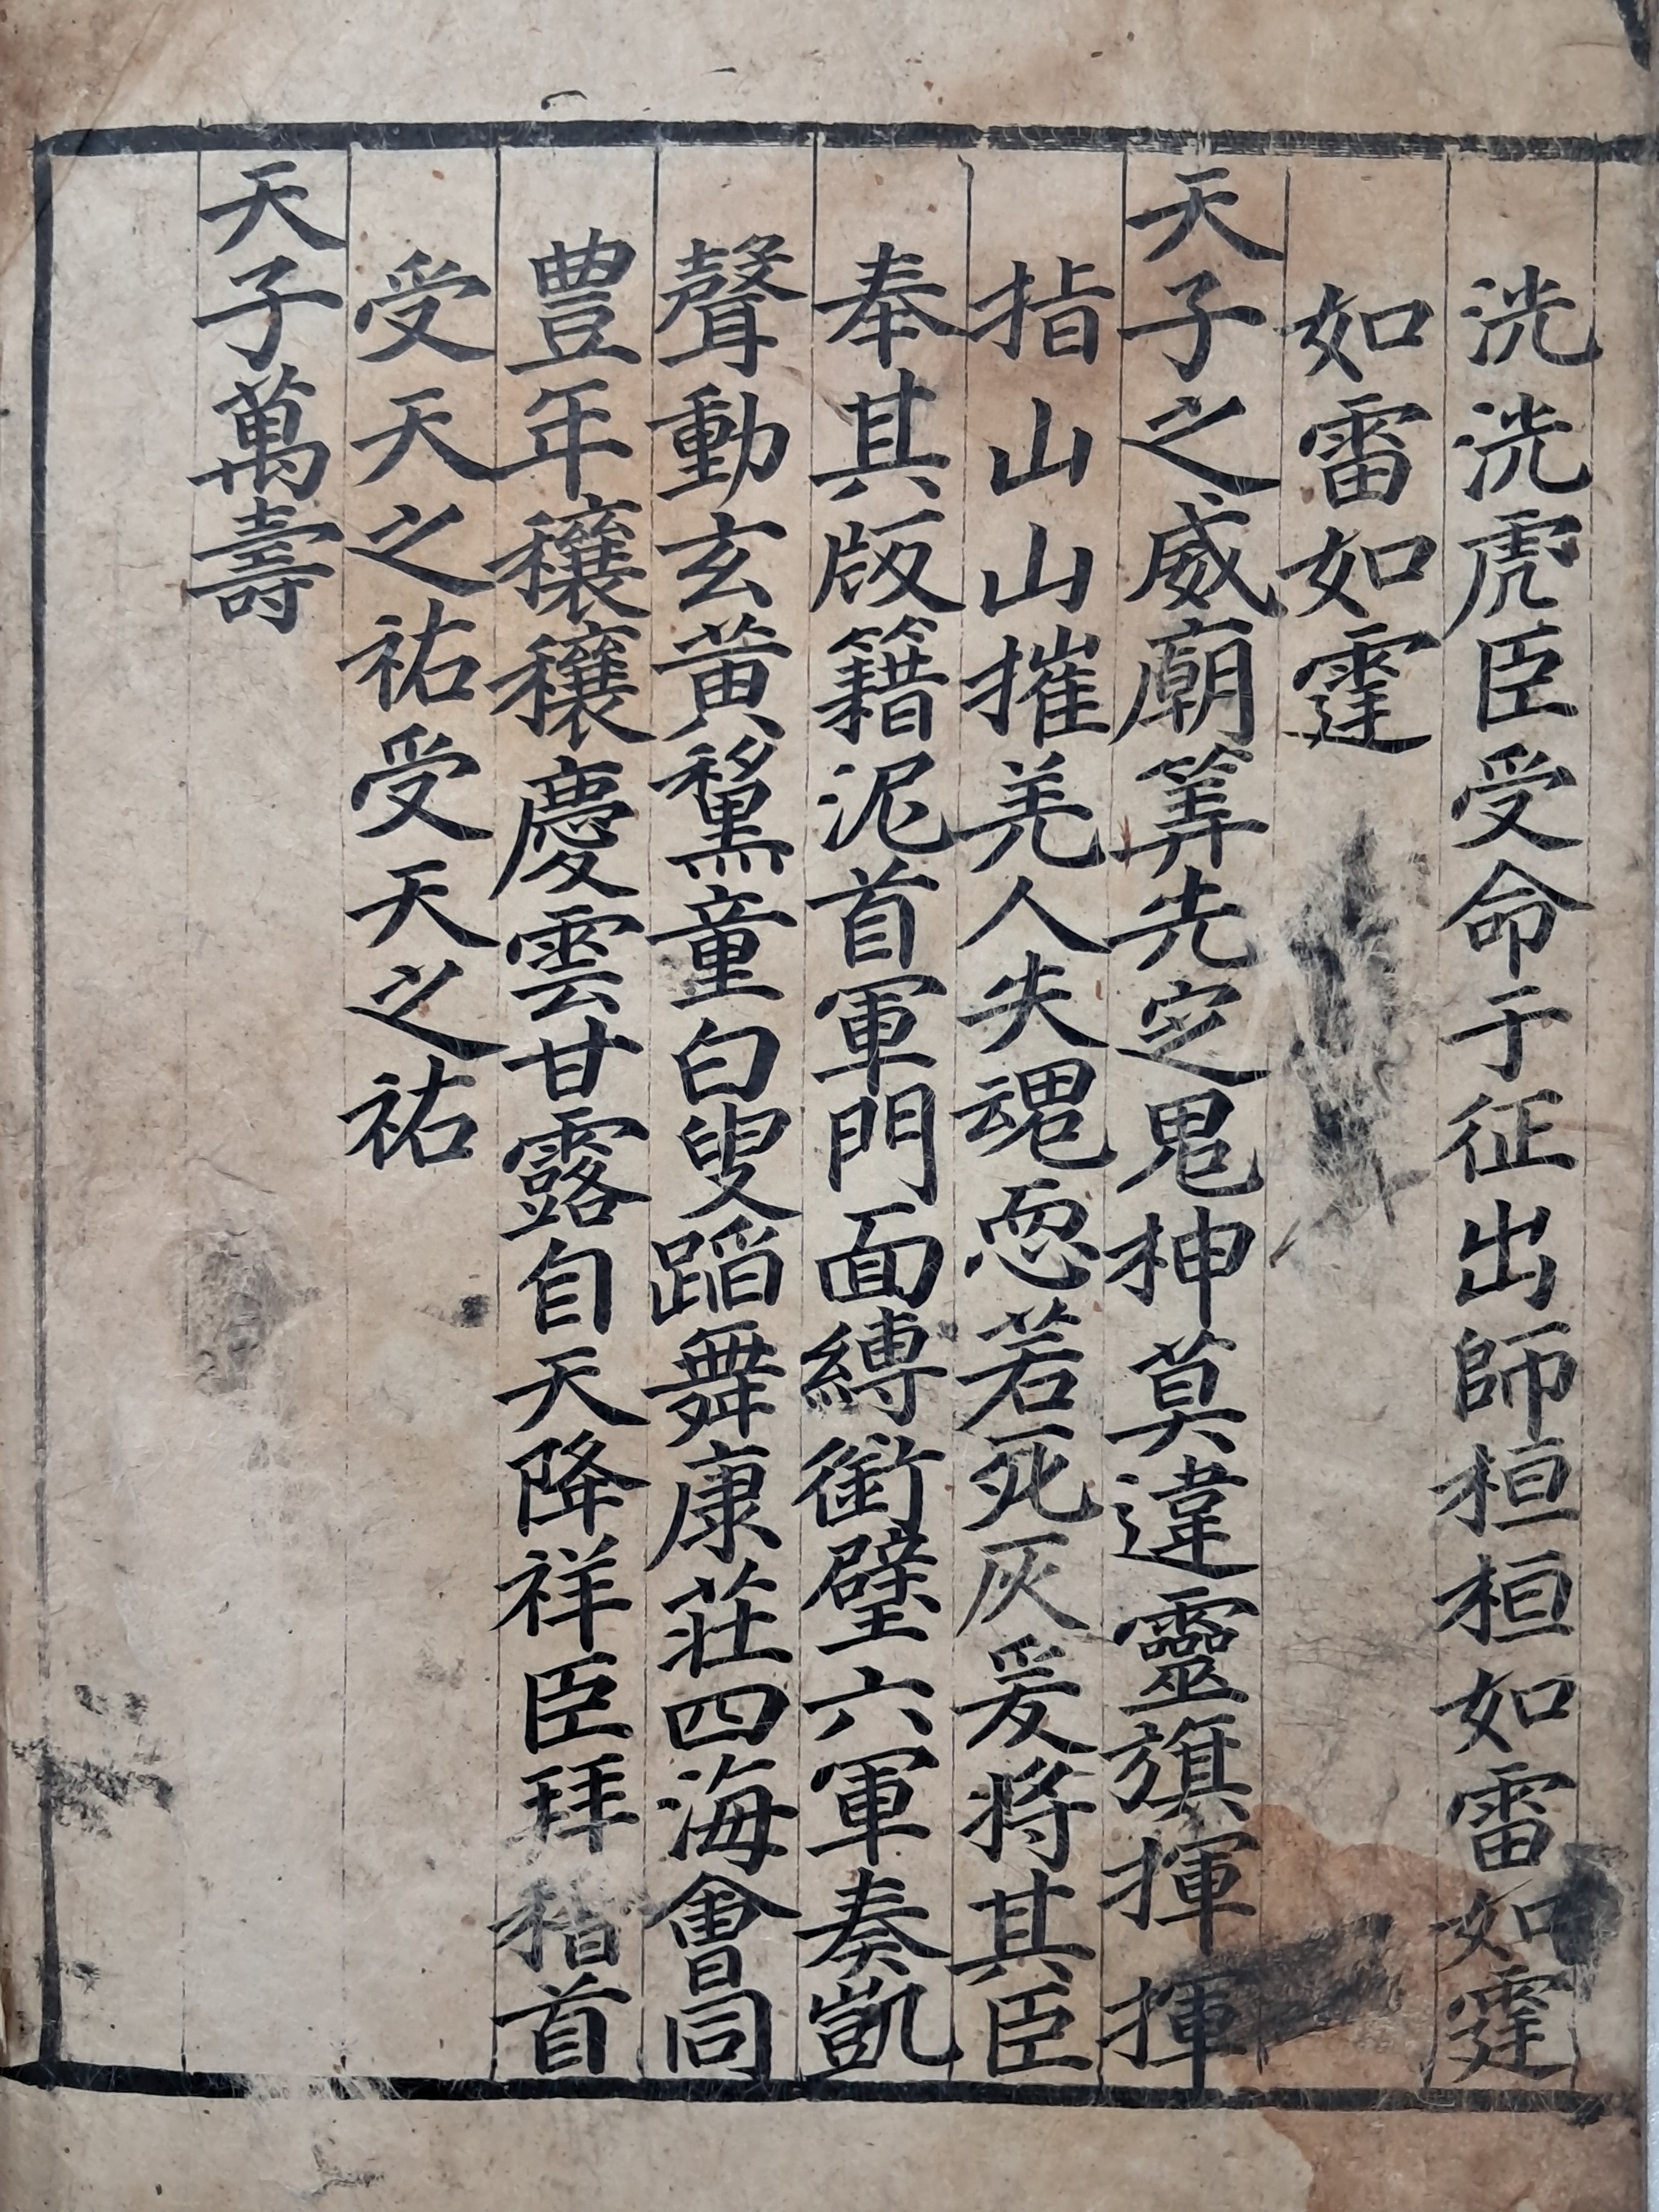 洸洸虎臣受命于征出師桓桓如雷如霆
如雷如霆
天子之威廟筭先定鬼神莫違靈旗揮揮
指山山摧羌人失魂恧若死灰爰將其臣
奉其版籍泥首軍門面縛銜璧六軍奏凱
聲動玄黃黧童白叟蹈舞康莊四海會同
豊年穰穰慶雲甘露自天降祥臣拜稽首
受天之祜受天之祜
天子萬壽